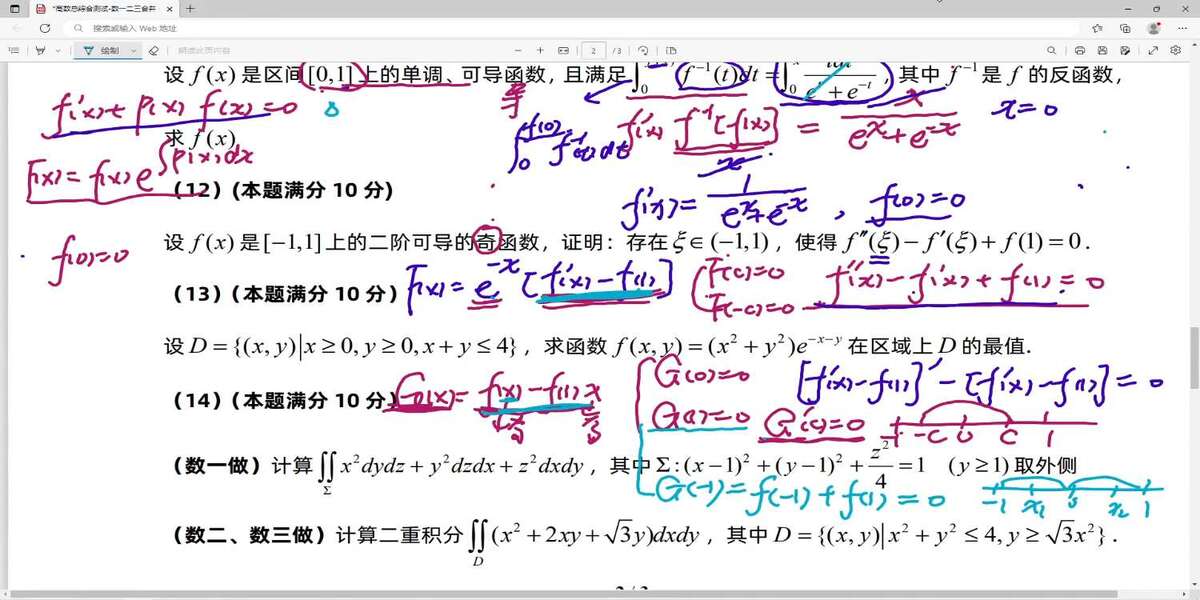 "高数总综合测试-数一二三合并
搜索或输入 Web 地址
绘制
朗读此页内容
2 /3
设 f(x) 是区间[0,1]上的单调、可导函数，且满足∫₀ f⁻¹(t)dt = ∫₀ˣ，其中 f⁻¹ 是 f 的反函数，
f'(x)+p(x)f(x)=0
x=0
求 f(x).
∫₀^f(0) f⁻¹(t)dt
f'(x) f⁻¹[f(x)] = x/(eˣ+e⁻ˣ)
x
F(x)=f(x)e^∫p(x)dx
（12）(本题满分 10 分)
f'(x)=1/(eˣ+e⁻ˣ) , f(0)=0
设 f(x) 是[−1,1]上的二阶可导的奇函数，证明：存在 ξ∈(−1,1)，使得 f″(ξ)−f′(ξ)+f(1)=0.
f(0)=0
（13）(本题满分 10 分)
F(x)=e⁻ˣ[f'(x)−f(1)]
F(c)=0
F(-c)=0
f''(x)−f'(x)+f(1)=0
设 D={(x,y)|x≥0,y≥0,x+y≤4}，求函数 f(x,y)=(x²+y²)e^(−x−y) 在区域上 D 的最值.
（14）(本题满分 10 分)
G(x)=f(x)−f(1)x
G(0)=0
[f'(x)−f(1)]'−[f'(x)−f(1)]=0
G(1)=0
G'(c)=0
-1 -c 0 c 1
（数一做）计算∬_Σ x²dydz+y²dzdx+z²dxdy，其中 Σ:(x−1)²+(y−1)²+z²/4=1 (y≥1)取外侧
G(-1)=f(-1)+f(1)=0
-1 x₁ 0 x₂ 1
（数二、数三做）计算二重积分∬_D(x²+2xy+√3y)dxdy，其中 D={(x,y)|x²+y²≤4,y≥√3x²}.
2 / 3